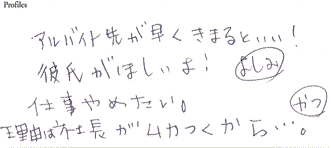 Profiles
アルバイト先が早くきまるといい!
彼氏がほしいよ! よしみ
仕事やめたい。 かつ
理由は社長がムカつくから…。